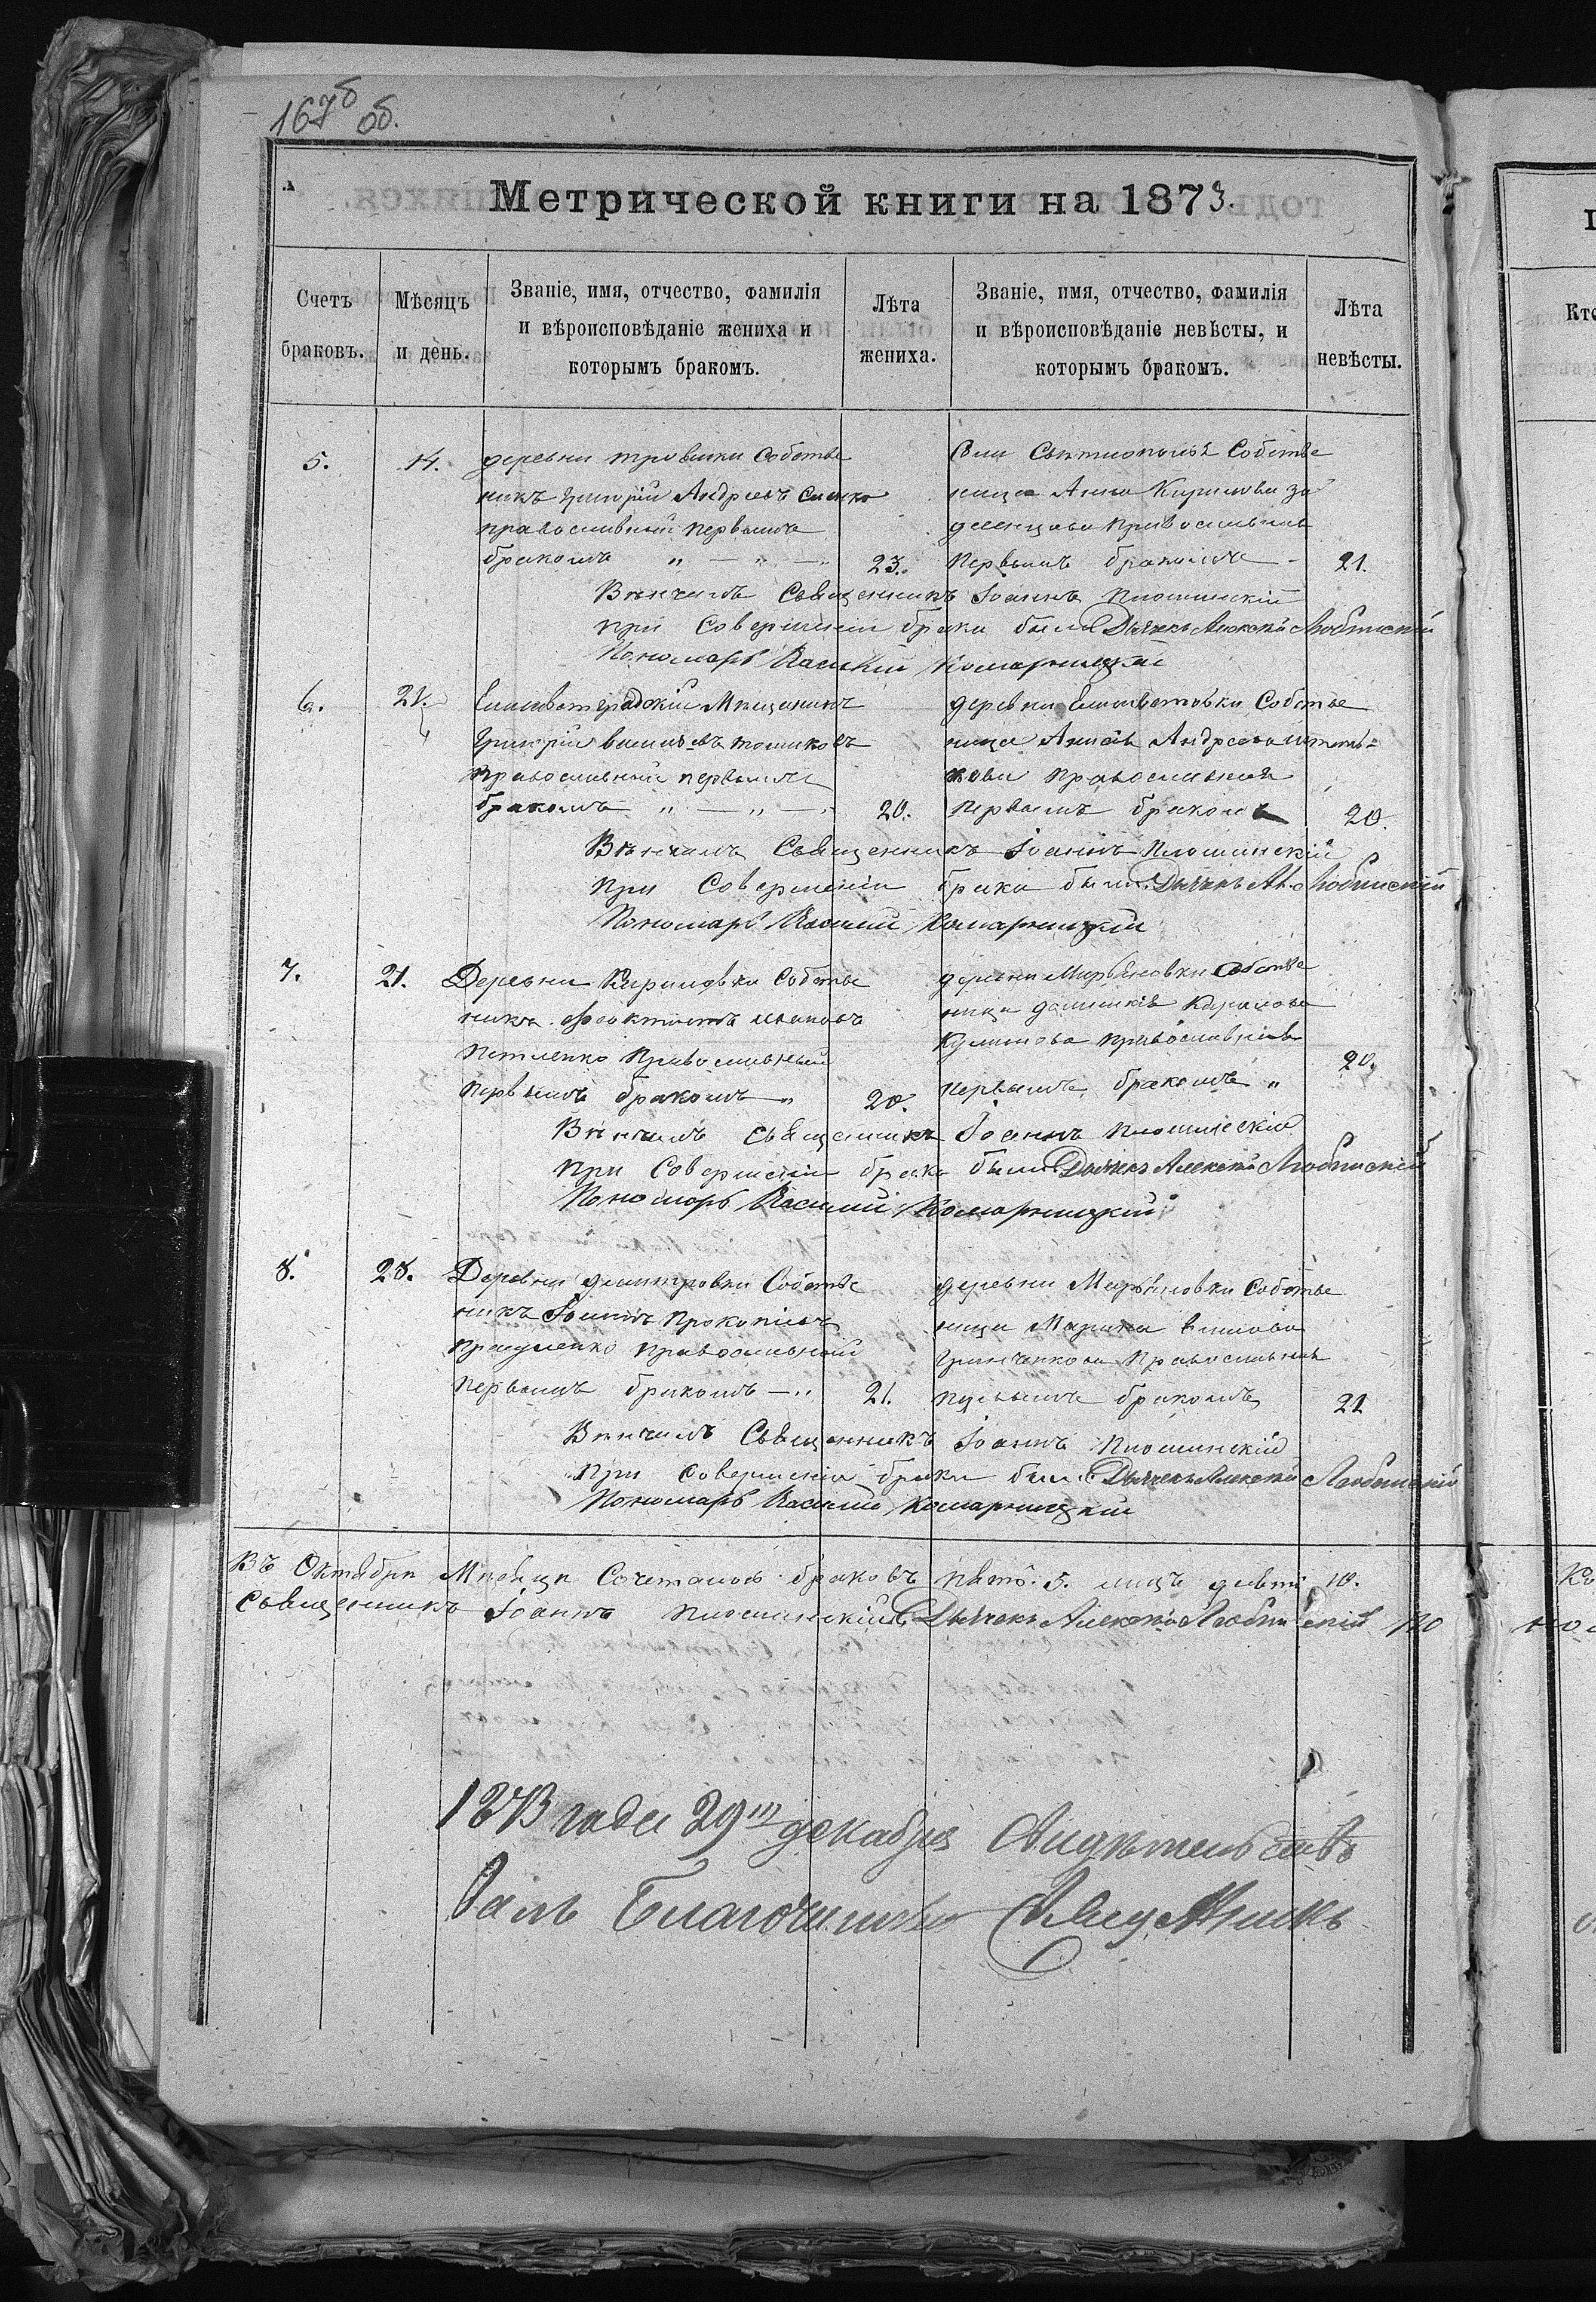 167б об.
Метрической книги на 1873.
Счетъ браковъ.
Мѣсяцъ и день.
Званіе, имя, отчество, фамилія и вѣроисповѣданіе жениха и которымъ бракомъ.
Лѣта жениха.
Званіе, имя, отчество, фамилія и вѣроисповѣданіе невѣсты, и которымъ бракомъ.
Лѣта невѣсты.
5. 14.
деревни Собстве
никъ Григорій Андреевъ
православный первымъ
бракомъ " — " — " 23.
Села Собстве
ница Анна Кирилова За
православная
первымъ бракомъ - 21.
Вѣнчалъ Священникъ Іоаннъ
при Совершеніи брака были Дьячекъ Алексѣй Любинскій
Пономарь Василій Комарницкій
6. 21.
Елисаветградскій Мѣщанинъ
Григорій
православный первымъ
бракомъ " — " — " 20.
деревни Елисаветовки Собстве
ница Андреева
кова православная
первымъ бракомъ 20.
Вѣнчалъ Священникъ Іоаннъ
при Совершеніи брака были Дьячекъ Ал. Любинскій
Пономарь Василій Комарницкій
7. 21.
Деревни Кириловки Собстве
никъ Феоктистъ Ивановъ
Петленко Православный
первымъ бракомъ " 20.
деревни Марьяновки Собстве
ница Кирилова
православная
первымъ бракомъ " 20.
Вѣнчалъ Священникъ Іоаннъ
при Совершеніи брака были Дьячекъ Алексѣй Любинскій
Пономарь Василій Комарницкій
8. 28.
Деревни Димитровки Собстве
никъ Іоаннъ Прокопіевъ
православный
первымъ бракомъ — " 21.
деревни Марьяновки Собстве
ница Марина
Гринченкова Православная
первымъ бракомъ 21
Вѣнчалъ Священникъ Іоаннъ
при Совершеніи брака были Дьячекъ Алексѣй Любинскій
Пономарь Василій Комарницкій
Въ Октябрѣ Мѣсяцѣ Сочеталось браковъ 5. лицъ 10.
Священникъ Іоаннъ Дьячекъ Алексѣй Любинскій
1873 года 29 декабря Свидѣтельство
валъ Благочинный